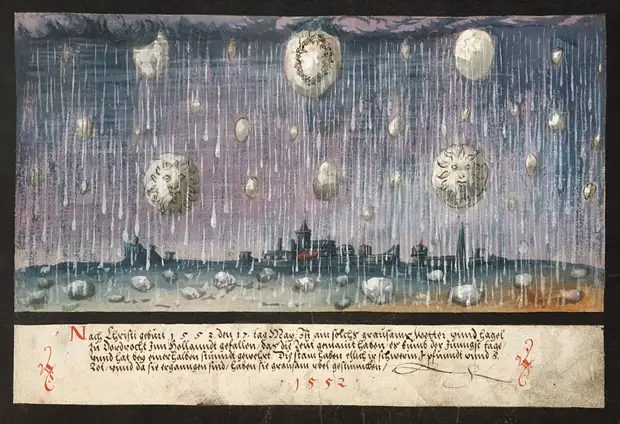 Nach Christi geburt 1552 den 17 tag May. Ist ain solchs grausams wetter vnnd hagel
zu Dordrecht Jnn Hollanndt gefallen, das die leut gemaint haben es kumb der Jungst tage
vnnd hat beÿ einer halben stunndt geweret. Die stain haben etlich gewogen 7 pfundt vnnd 8
lot, vnnd da sie ergangen sind, haben sie grausam vbel gestunncken /
· 1552 ·